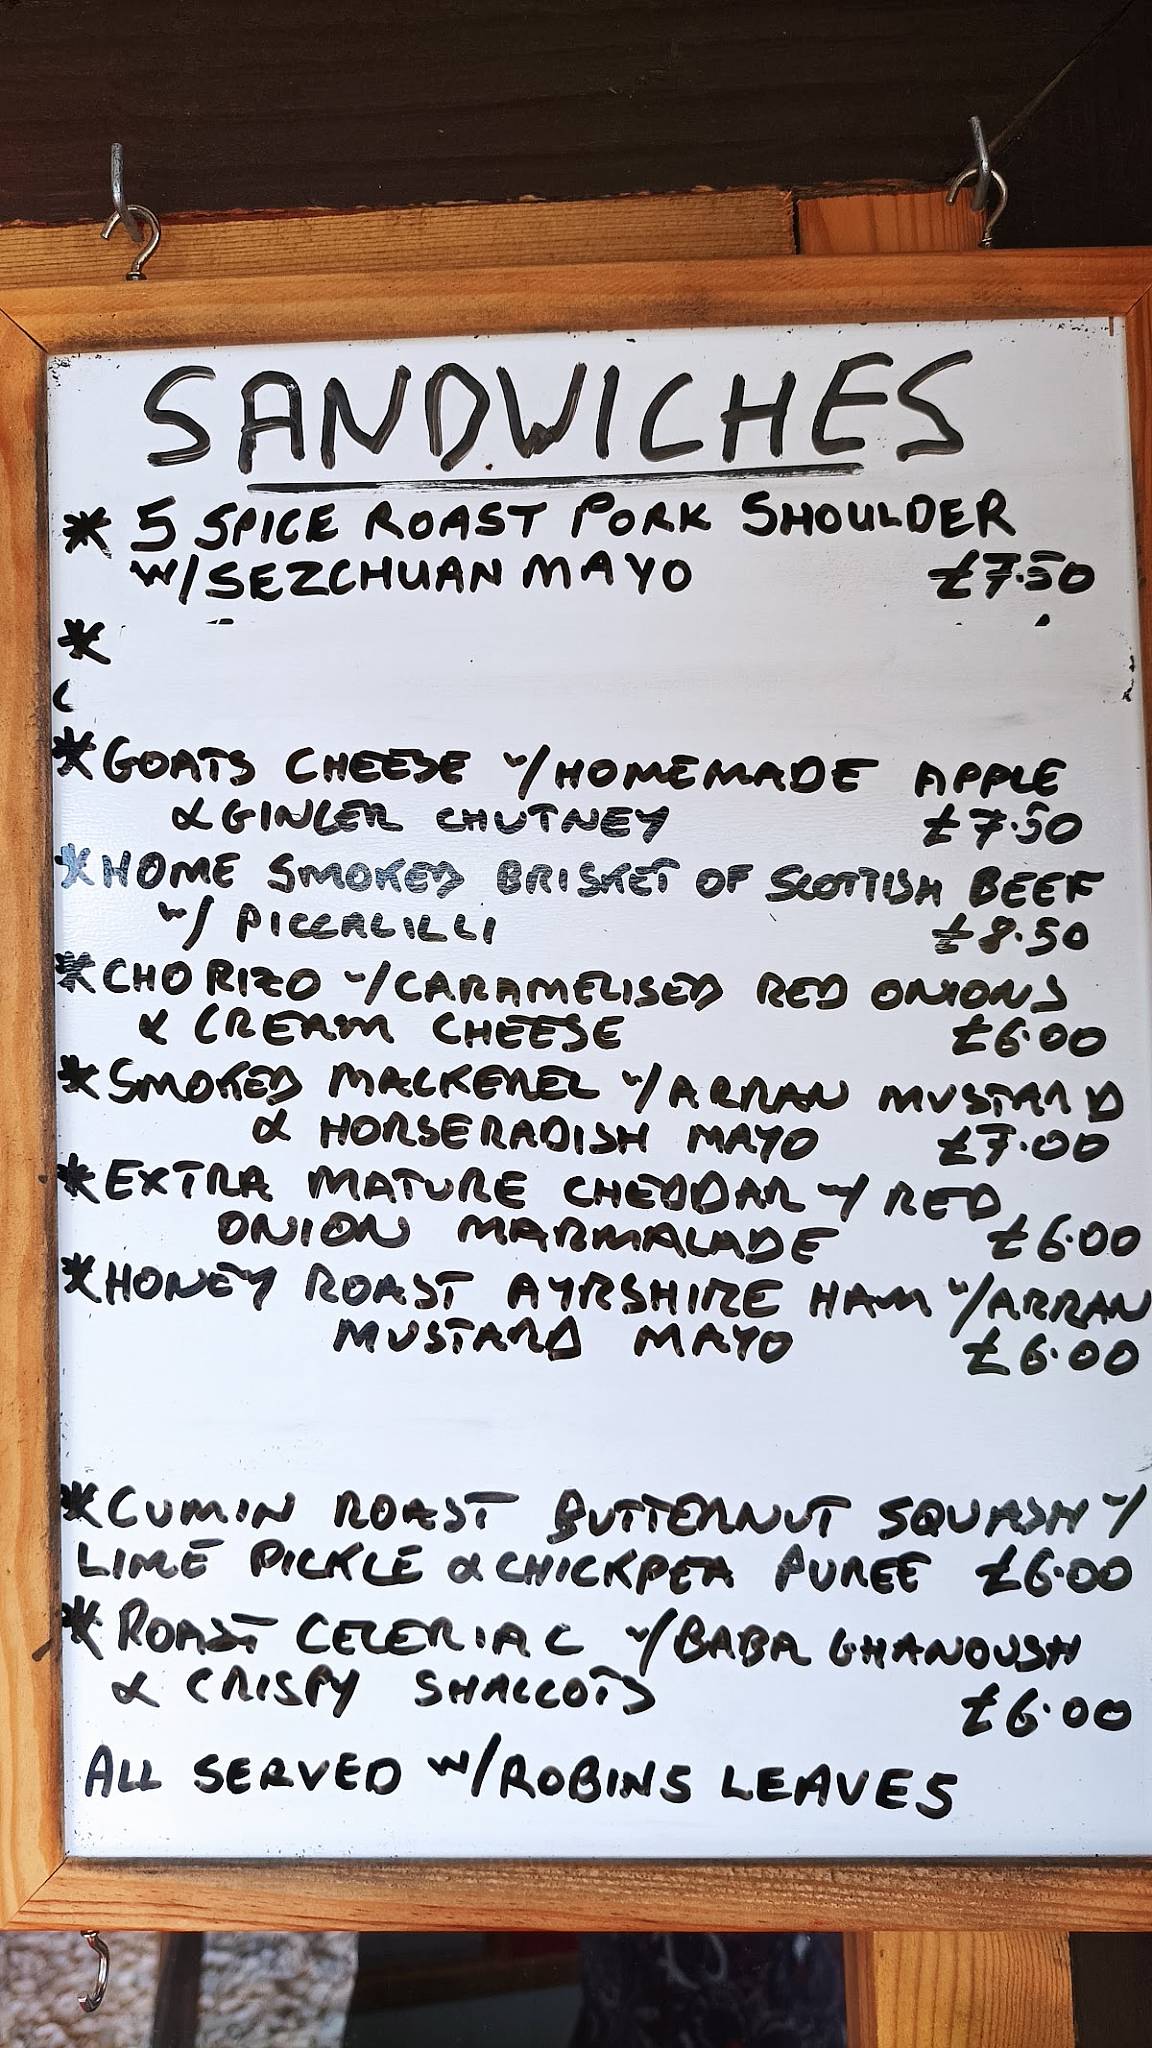 SANDWICHES
* 5 SPICE ROAST PORK SHOULDER
W/SEZCHUAN MAYO £7.50
*
*GOATS CHEESE W/HOMEMADE APPLE
& GINGER CHUTNEY £7.50
*HOME SMOKED BRISKET OF SCOTTISH BEEF
W/ PICCALILLI £8.50
*CHORIZO W/CARAMELISED RED ONIONS
& CREAM CHEESE £6.00
*SMOKED MACKEREL W/ARRAN MUSTARD
& HORSERADISH MAYO £7.00
*EXTRA MATURE CHEDDAR W/ RED
ONION MARMALADE £6.00
*HONEY ROAST AYRSHIRE HAM W/ARRAN
MUSTARD MAYO £6.00
*CUMIN ROAST BUTTERNUT SQUASH W/
LIME PICKLE & CHICKPEA PUREE £6.00
* ROAST CELERIAC W/BABA GHANOUSH
& CRISPY SHALLOTS £6.00
ALL SERVED W/ROBINS LEAVES